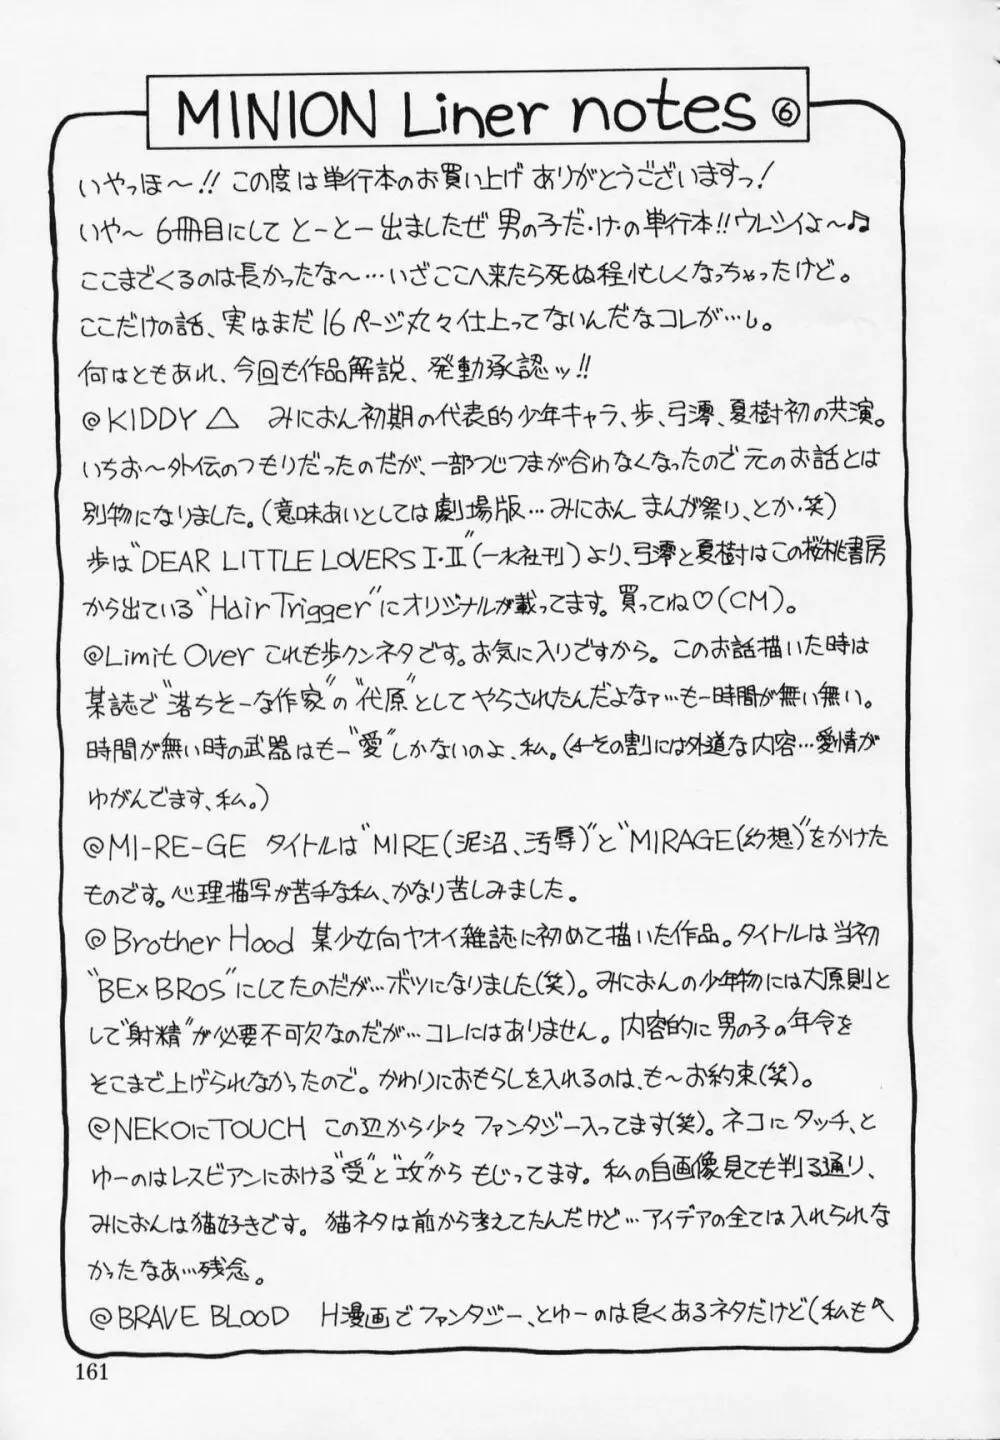 MINION Liner notes ⑥
いやっほ〜!! この度は単行本のお買い上げ ありがとうございますっ!
いや〜 6冊目にして とーとー出ましたぜ 男の子だ・け・の単行本!! ウレシイよ〜♪
ここまでくるのは長かったな〜…いざここへ来たら死ぬ程忙しくなっちゃったけど。
ここだけの話、実はまだ16ページ丸々仕上ってないんだなコレが…し。
何はともあれ、今回も作品解説、発動承認ッ!!
@KIDDY△ みにおん初期の代表的少年キャラ、歩、弓澪、夏樹初の共演。
いちお〜外伝のつもりだったのだが、一部つじつまが合わなくなったので元のお話とは
別物になりました。(意味あいとしては劇場版…みにおん まんが祭り、とか・笑)
歩は"DEAR LITTLE LOVERS I・II"(一水社刊)より、弓澪と夏樹はこの桜桃書房
から出ている"Hair Trigger"にオリジナルが載ってます。買ってね♡(CM)。
@Limit Over これも歩クンネタです。お気に入りですから。このお話描いた時は
某誌で"落ちそーな作家"の"代原"として やらされたんだよなァ…も一時間が無い無い。
時間が無い時の武器はもー"愛"しかないのよ、私。(←その割には外道な内容…愛情が
ゆがんでます、私。)
@MI-RE-GE タイトルは"MIRE(泥沼、汚辱)"と"MIRAGE(幻想)"をかけた
ものです。心理描写が苦手な私、かなり苦しみました。
@Brother Hood 某少女向ヤオイ雑誌に初めて描いた作品。タイトルは当初
"BE×BROS"にしてたのだが…ボツになりました(笑)。みにおんの少年物には大原則と
して"射精"が必要不可欠なのだが…コレにはありません。内容的に男の子の年令を
そこまで上げられなかったので。かわりにおもらしを入れるのは、も〜お約束(笑)。
@NEKOにTOUCH この辺から少々ファンタジー入ってます(笑)。ネコにタッチ、と
ゆーのはレスビアンにおける"受"と"攻"から もじってます。私の自画像見ても判る通り、
みにおんは猫好きです。猫ネタは前から考えてたんだけど…アイデアの全ては入れられな
かったなあ…残念。
@BRAVE BLOOD H漫画でファンタジー、とゆーのは良くあるネタだけど(私も↖
161